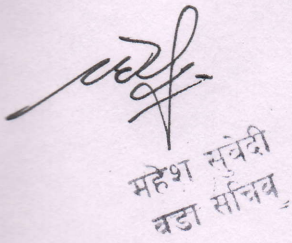 महेश सुवेदी
वडा सचिव